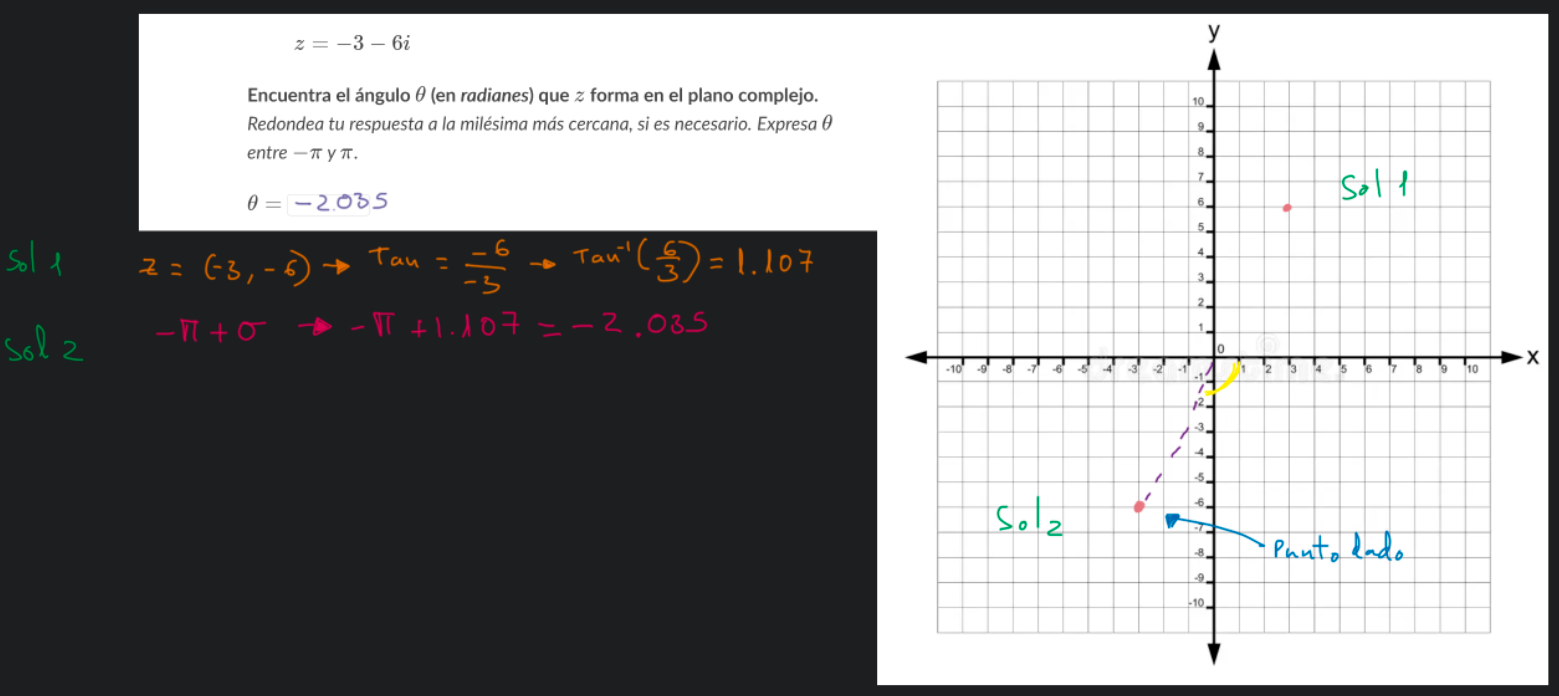 z = −3 − 6i
Encuentra el ángulo θ (en radianes) que z forma en el plano complejo.
Redondea tu respuesta a la milésima más cercana, si es necesario. Expresa θ
entre −π y π.
θ = −2.035
Sol 1
z = (-3, -6) → Tan = -6/-3 → Tan⁻¹(6/3) = 1.107
Sol 2
-π + σ → -π + 1.107 = -2.035
y
10
9
8
7
6
5
4
3
2
1
0
-10 -9 -8 -7 -6 -5 -4 -3 -2 -1 1 2 3 4 5 6 7 8 9 10
x
-1
-2
-3
-4
-5
-6
-7
-8
-9
-10
Sol 1
Sol 2
Punto dado